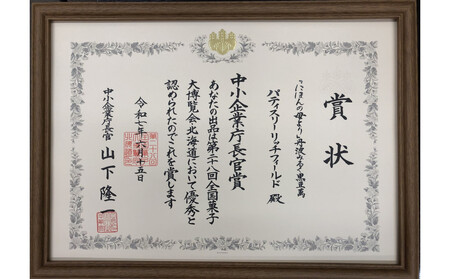 賞状
「にほんの母より」丹波みのり黒豆萬
パティスリーリッチフィールド 殿
中小企業庁長官賞
あなたの出品は第二十八回全国菓子
大博覧会・北海道において優秀と
認められたのでこれを賞します
令和七年六月十五日
中小企業庁長官 山下隆一